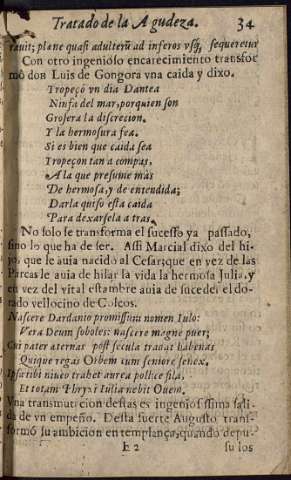 Tratado de la Agudeza. 34
rauit; plane quasi adulterũ ad inferos vsq; sequeretur
Con otro ingenioso encarecimiento transfor
mò don Luis de Gongora vna caida y dixo.
Tropeçò vn dia Dantea
Ninfa del mar, porquien son
Grosera la discrecion,
Y la hermosura fea.
Si es bien que caida sea
Tropeçon tan a compas,
A la que presume màs
De hermosa, y de entendida;
Darla quiso esta caida
Para dexarsela a tras.
No solo se transforma el sucesso ya passado,
sino lo que ha de ser. Assi Marcial dixo del hi-
jo, que le auia nacido al Cesar; que en vez de las
Parcas le auia de hilar la vida la hermosa Julia, y
en vez del vital estambre auia de suceder el do-
rado vellocino de Colcos.
Nascere Dardanio promissum nomen Iulo:
Vera Deum soboles: nascere magne puer;
Cui pater aternas post secula tradat habenas
Quique regas Orbem cum seniore senex.
Ipsa tibi niueo trahet aurea pollice fila;
Et totam Phryxi Iulia nebit Ouem.
Vna transmutacion destas es ingeniosissima sali-
da de vn empeño. Desta suerte Augusto trans-
formó su ambicion en templança, quando depu-
E 2 su los